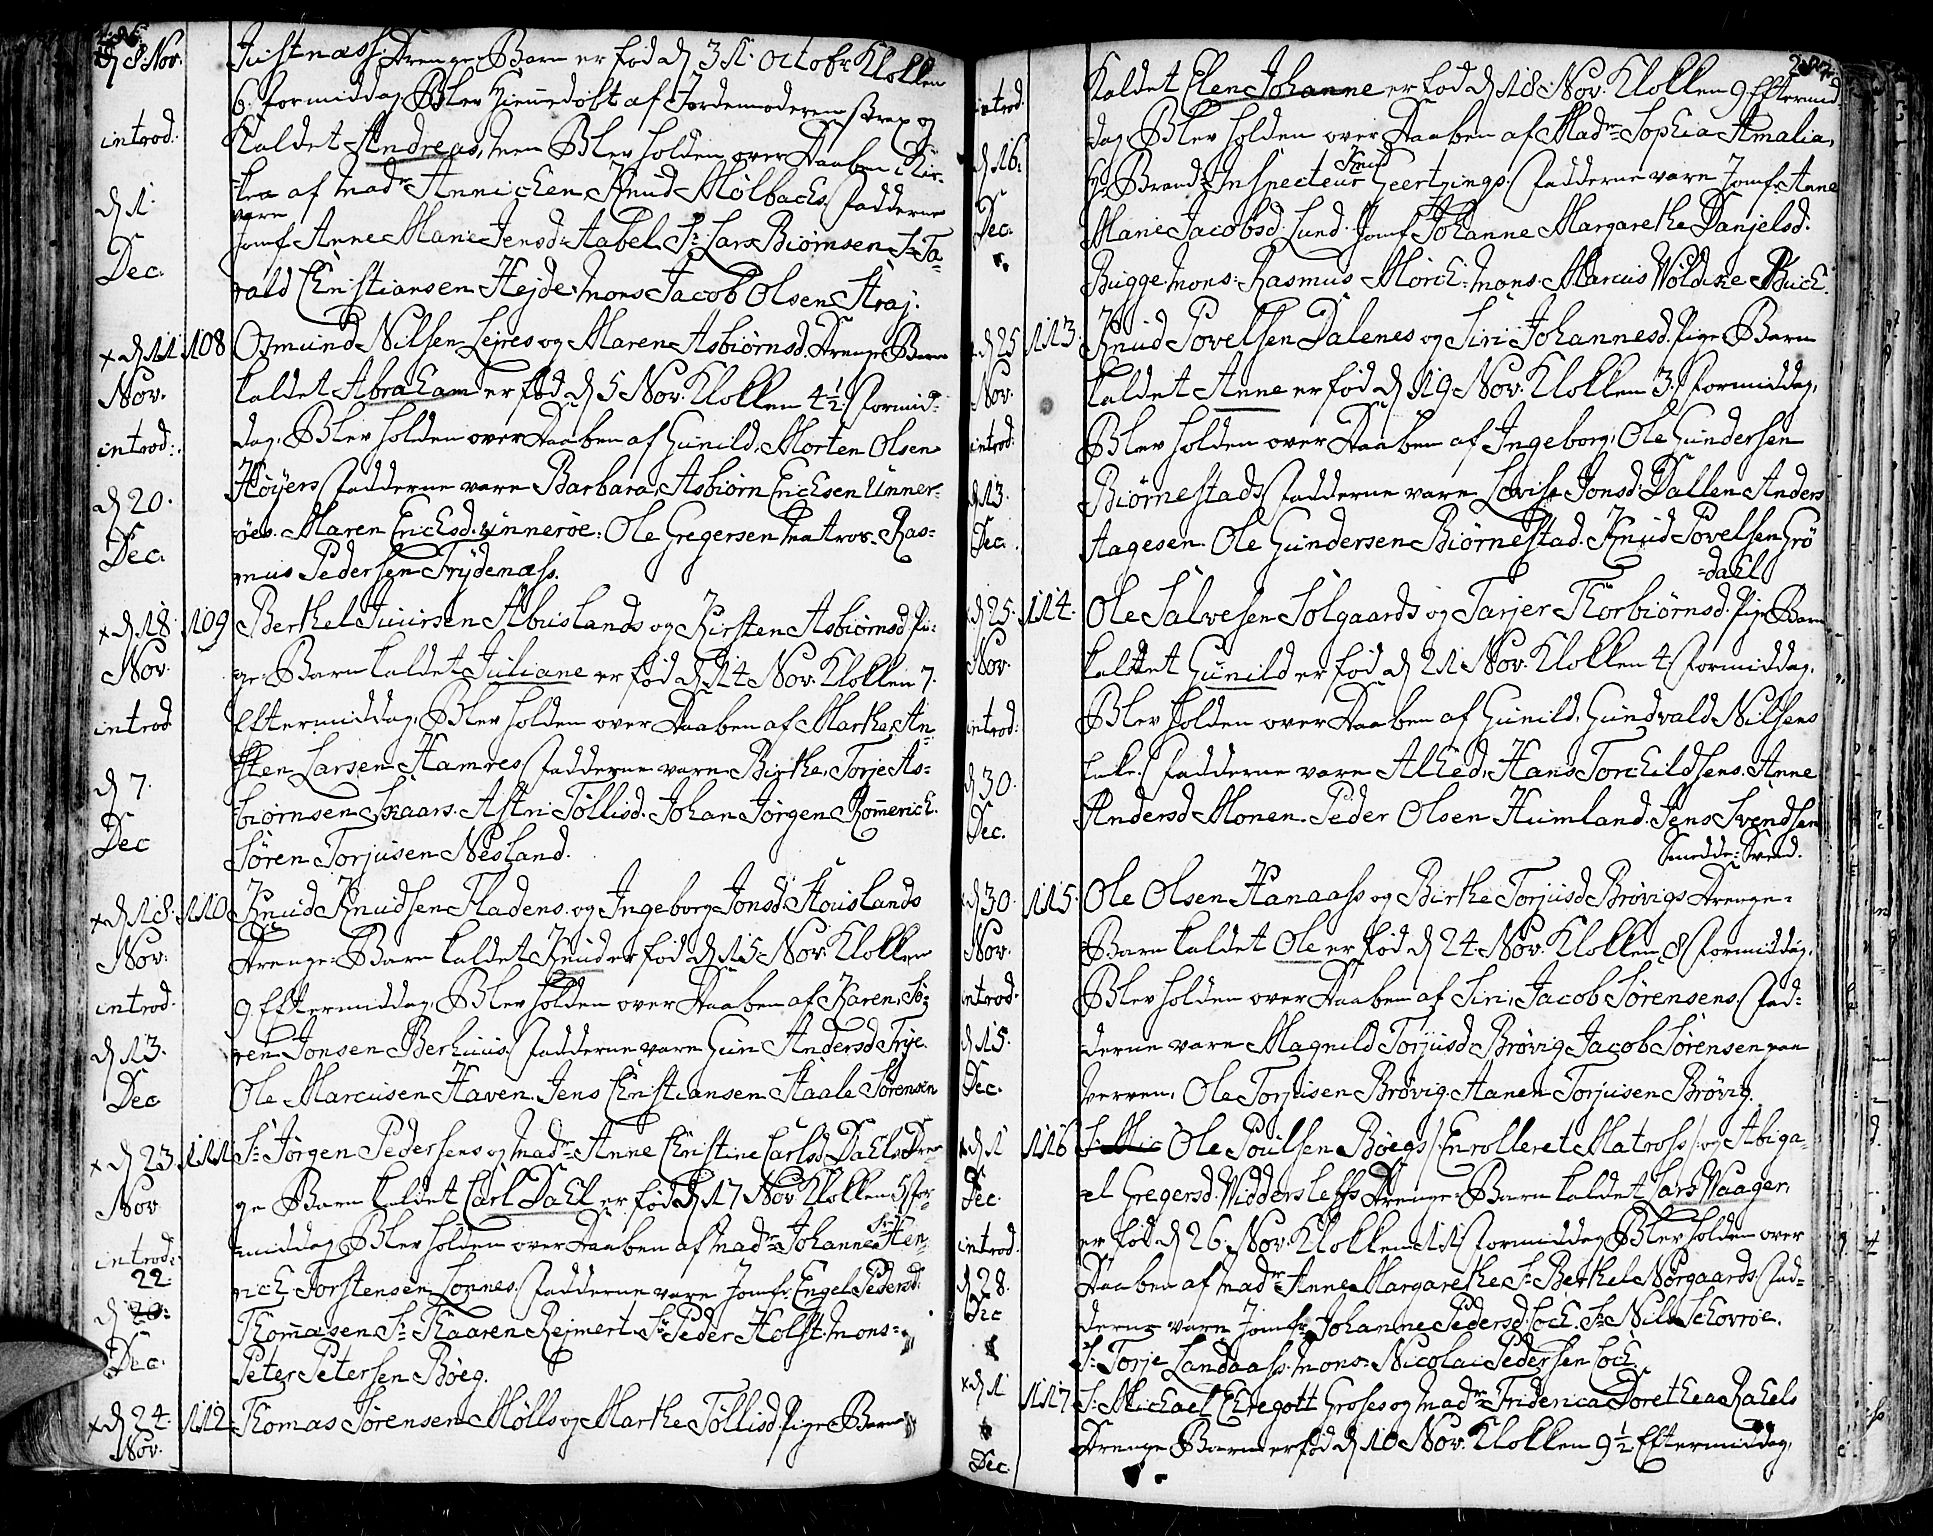 d 8. Nov.
introd.
d 1.
Dec.
Justnæss. Drenge-Barn er fød d 31. Octobr. Klokken
6. formiddag Blev Hiemedøbt af Jordemoderen strax og
Kaldet Andreas, men Blev holden over Daaben i Kir-
ken af Madr. Annichen, Knud Mølbachs. Fadderne
vare
Jomf. Anne Marie Jensd. Aabel. Sr. Lars Biørnsen. Sr. Ta-
rald Christiansen Hejde. Mons. Jacob Olsen Straj.
x d 11. 108
Nov.
introd.
d 20.
Dec.
Osmund Nilsen Lejres og Maren Asbiørnsd. Drenge-Barn
kaldet Abraham er fød d 5 Nov. Klokken 4½ formid-
dag. Blev holden over Daaben af Gunild, Morten Olsen
Høyers. Fadderne vare Barbara, Asbiørn Ericksen Unner-
øes. Maren Ericksd. Unnerøe. Ole Gregersen Matros. Ras-
mus Pedersen Frydenæss.
x d 18. 109
Nov.
introd.
d 7.
Dec
Berthel Juursen Abuslands og Kirsten Asbiørnsd. Pi-
ge-Barn kaldet Juliane er fød d 14 Nov. Klokken 7.
Eftermiddag. Blev holden over Daaben af Marthe, An-
sten Larsen Hamres. Fadderne vare Birthe, Torje As-
biørnsen Skaars. Astri Tøllisd. Johan Jørgen Romerich.
Søren Torjusen Nesland.
x d 18. 110
Nov.
introd.
d 13.
Dec
Knud Knudsen Fladens og Ingeborg Jonsd. Aauslands
Drenge-Barn kaldet Knud er fød d 15 Nov. Klokken
9 Eftermiddag. Blev holden over Daaben af Karen, Sø-
ren Jonsen Berhuus. Fadderne vare Guri Andersd. Frje.
Ole Marcusen Haven. Jens Christiansen. Staale Sørensen
x d 23. 111
Nov
introd.
22.
d 20.
Dec.
Sr. Jørgen Pedersens og Madr. Anne Christine Carlsd. Dahls Dren-
ge Barn kaldet Carl Dahl er fød d 17 Nov. Klokken 5 for-
middag. Blev holden over Daaben af Madr. Johanne, Sr. Hen-
rich Torstensen Lonnes. Fadderne vare Jomfr. Engel Pedersd.
Thomæsen. Sr. Thaaren Rejmert. Sr. Peder Holst. Mons.
Peter Petersen Bøeg.
x d 24. 112.
Nov.
Thomas Sørensen Mølls og Marthe Tøllisd. Pige-Barn
introd.
d 16.
Dec.
Kaldet Elen Johanne er fød d 18 Nov. Klokken 9 Eftermid-
dag. Blev holden over Daaben af Madr. Sophia Amalia,
Hr. Brand-Inspecteur Knud Geertzings. Fadderne vare Jomf. Anne
Marie Jacobsd. Lund. Jomf. Johanne Margarethe Danjelsd.
Bugge. Mons. Rasmus Mørch. Mons. Marcus Wøldike Buch.
x d 25 113.
Nov.
introd.
d 13.
Dec.
Knud Povelsen Dalenes og Siri Johannesd. Pige-Barn
kaldet Anne er fød d 19 Nov. Klokken 3. formiddag,
Blev holden over Daaben af Ingeborg, Ole Gundersen
Biørnestads. Fadderne vare Lovise Jonsd. Dallen. Anders
Aagesen. Ole Gundersen Biørnestad. Knud Povelsen Grø
=dahl
x d 25. 114.
Nov.
introd.
d 30.
Dec.
Ole Salvesen Solgaards og Tarjer Thorbiørnsd. Pige Barn
kaldet Gunild er fød d 21 Nov. Klokken 4 formiddag.
Blev holden over Daaben af Gunild, Gundvald Nilsens
Enke. Fadderne vare Alhed, Hans Torchildsens. Anne
Andersd. Monen. Peder Olsen Humland. Jens Svendsen
Smedde-Svend.
x d 30. 115.
Nov.
introd.
d 15.
Dec.
Ole Olsen Hanaass og Birthe Torjusd. Brøvigs Drenge-
Barn kaldet Ole er fød d 24 Nov. Klokken 8 formiddag.
Blev holden over Daaben af Siri, Jacob Sørensens. Fad-
derne vare Magnild Torjusd. Brøvig. Jacob Sørensen paa
Verven. Ole Torjusen Brøvig. Aanen Torjusen Brøvig.
x d 1 116
Dec.
introd.
d 28.
Dec
Sr. Mic Ole Poulsen Bøegs /: Enrolleret Matross :/ og Abiga-
el Gregersd. Widdersleffs Drenge-Barn kaldet Lars Waager,
er fød d 26. Nov. Klokken 11 formiddag. Blev holden over
Daaben af Madr. Anne Margarethe, Sr. Berthel Nørgaards. Fad-
derne vare Jomfr. Johanne Pedersd. Loch. Sr. Nils Schovrøe.
Sr. Torje Landaass. Mons. Nicolai Pedersen Loch.
x d 1 117
Dec
Sr. Michael Ehregott Groses og Madr. Friderica Dorethea Rahels
Drenge Barn er fød d 10 Nov. Klokken 9½ Eftermiddag,